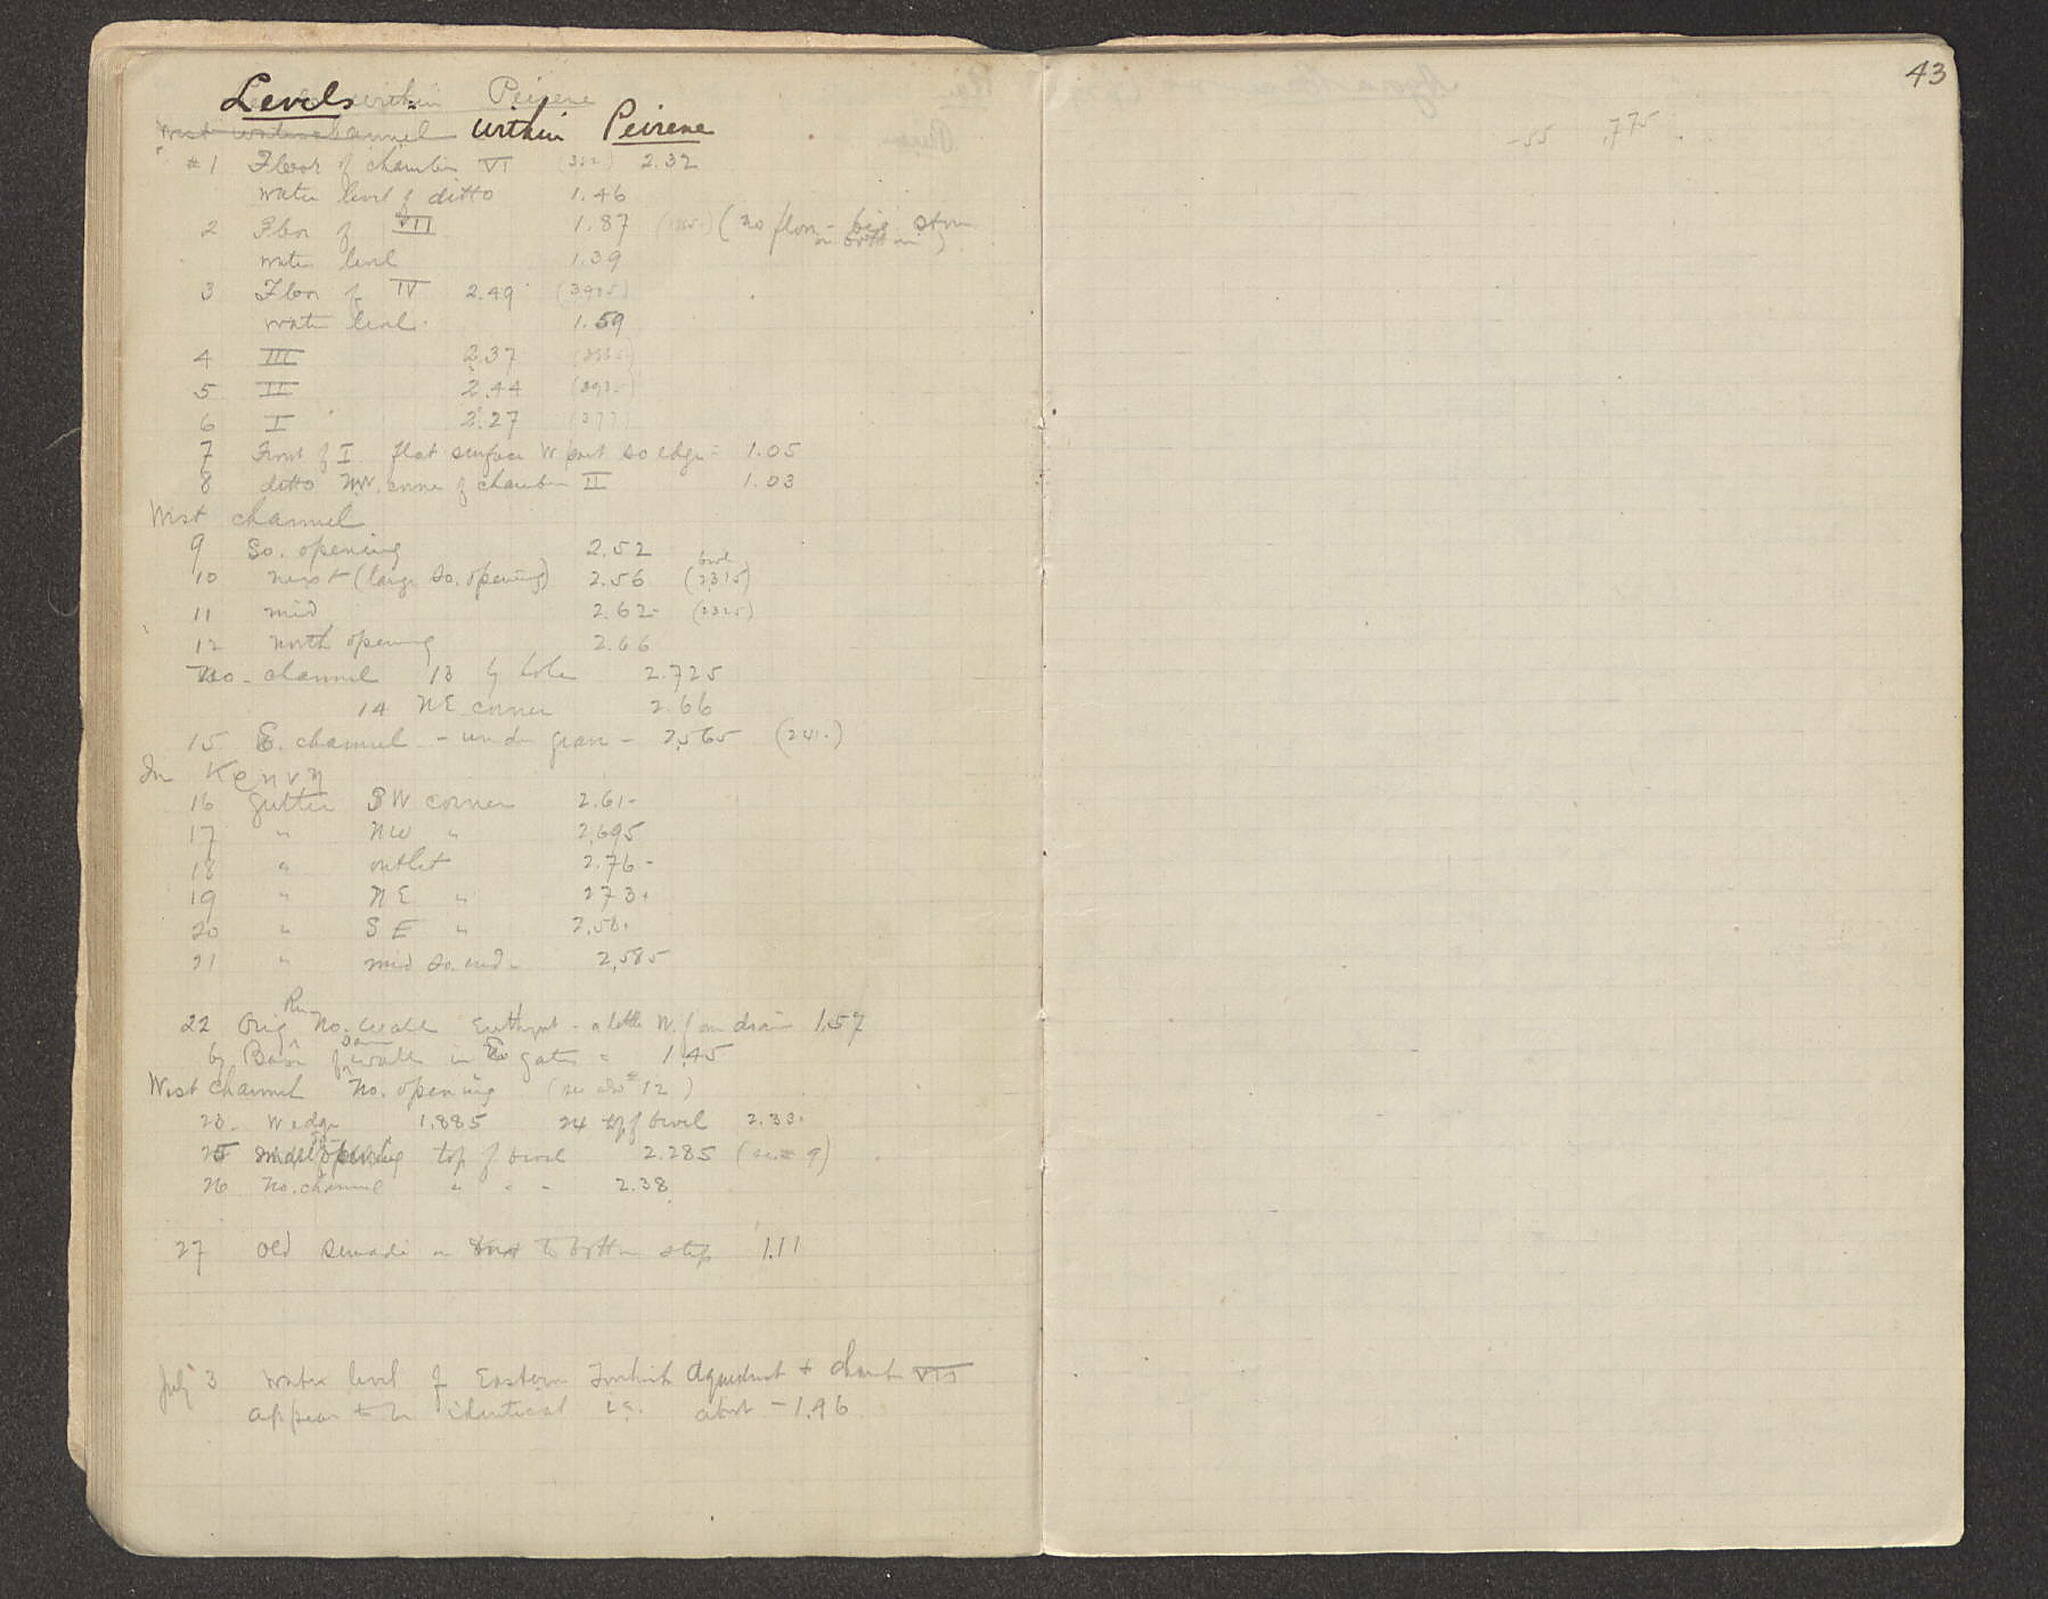 Levels within Peirene
West water channel within Peirene
#1 Floor of chamber VI 2.32
water level of ditto 1.46
2 Floor of VII 1.87 (no floor - big stone
on bottom)
water level 1.39
3 Floor of IV 2.49 (3905)
water level. 1.59
4 III 2.37
5 II 2.44
6 I 2.27 (377)
7 Front of I flat surface W part so edge = 1.05
8 ditto NW. corner of chamber II 1.03
West channel
9 So. opening 2.52
bevel
10 next (large So. opening) 2.56 (2315)
11 mid 2.62- (2325)
12 north opening 2.66
No. channel 13 by hole 2.725
14 NE corner 2.66
15 E. channel - under - 2.565 (241.)
In Κρηνη
16 gutter SW corner 2.61-
17 " NW " 2.695
18 " outlet 2.76-
19 " NE " 273.
20 " SE " 2.58.
21 " mid So. end - 2.585
22 Orig No. wall - a little W. of drain 1.57
by Basin of wall in gates = 1.45
West channel No. opening (see also #12)
23. W edge 1.885 24 top of bevel 2.33.
25 opening top of bevel 2.285 (see # 9)
26 No. channel " " " 2.38
27 Old on next to bottom step 1.11
July 3 water level of Eastern Turkish Aqueduct + chamb VII
appear to be identical i.e. about - 1.46
43
-55 .775